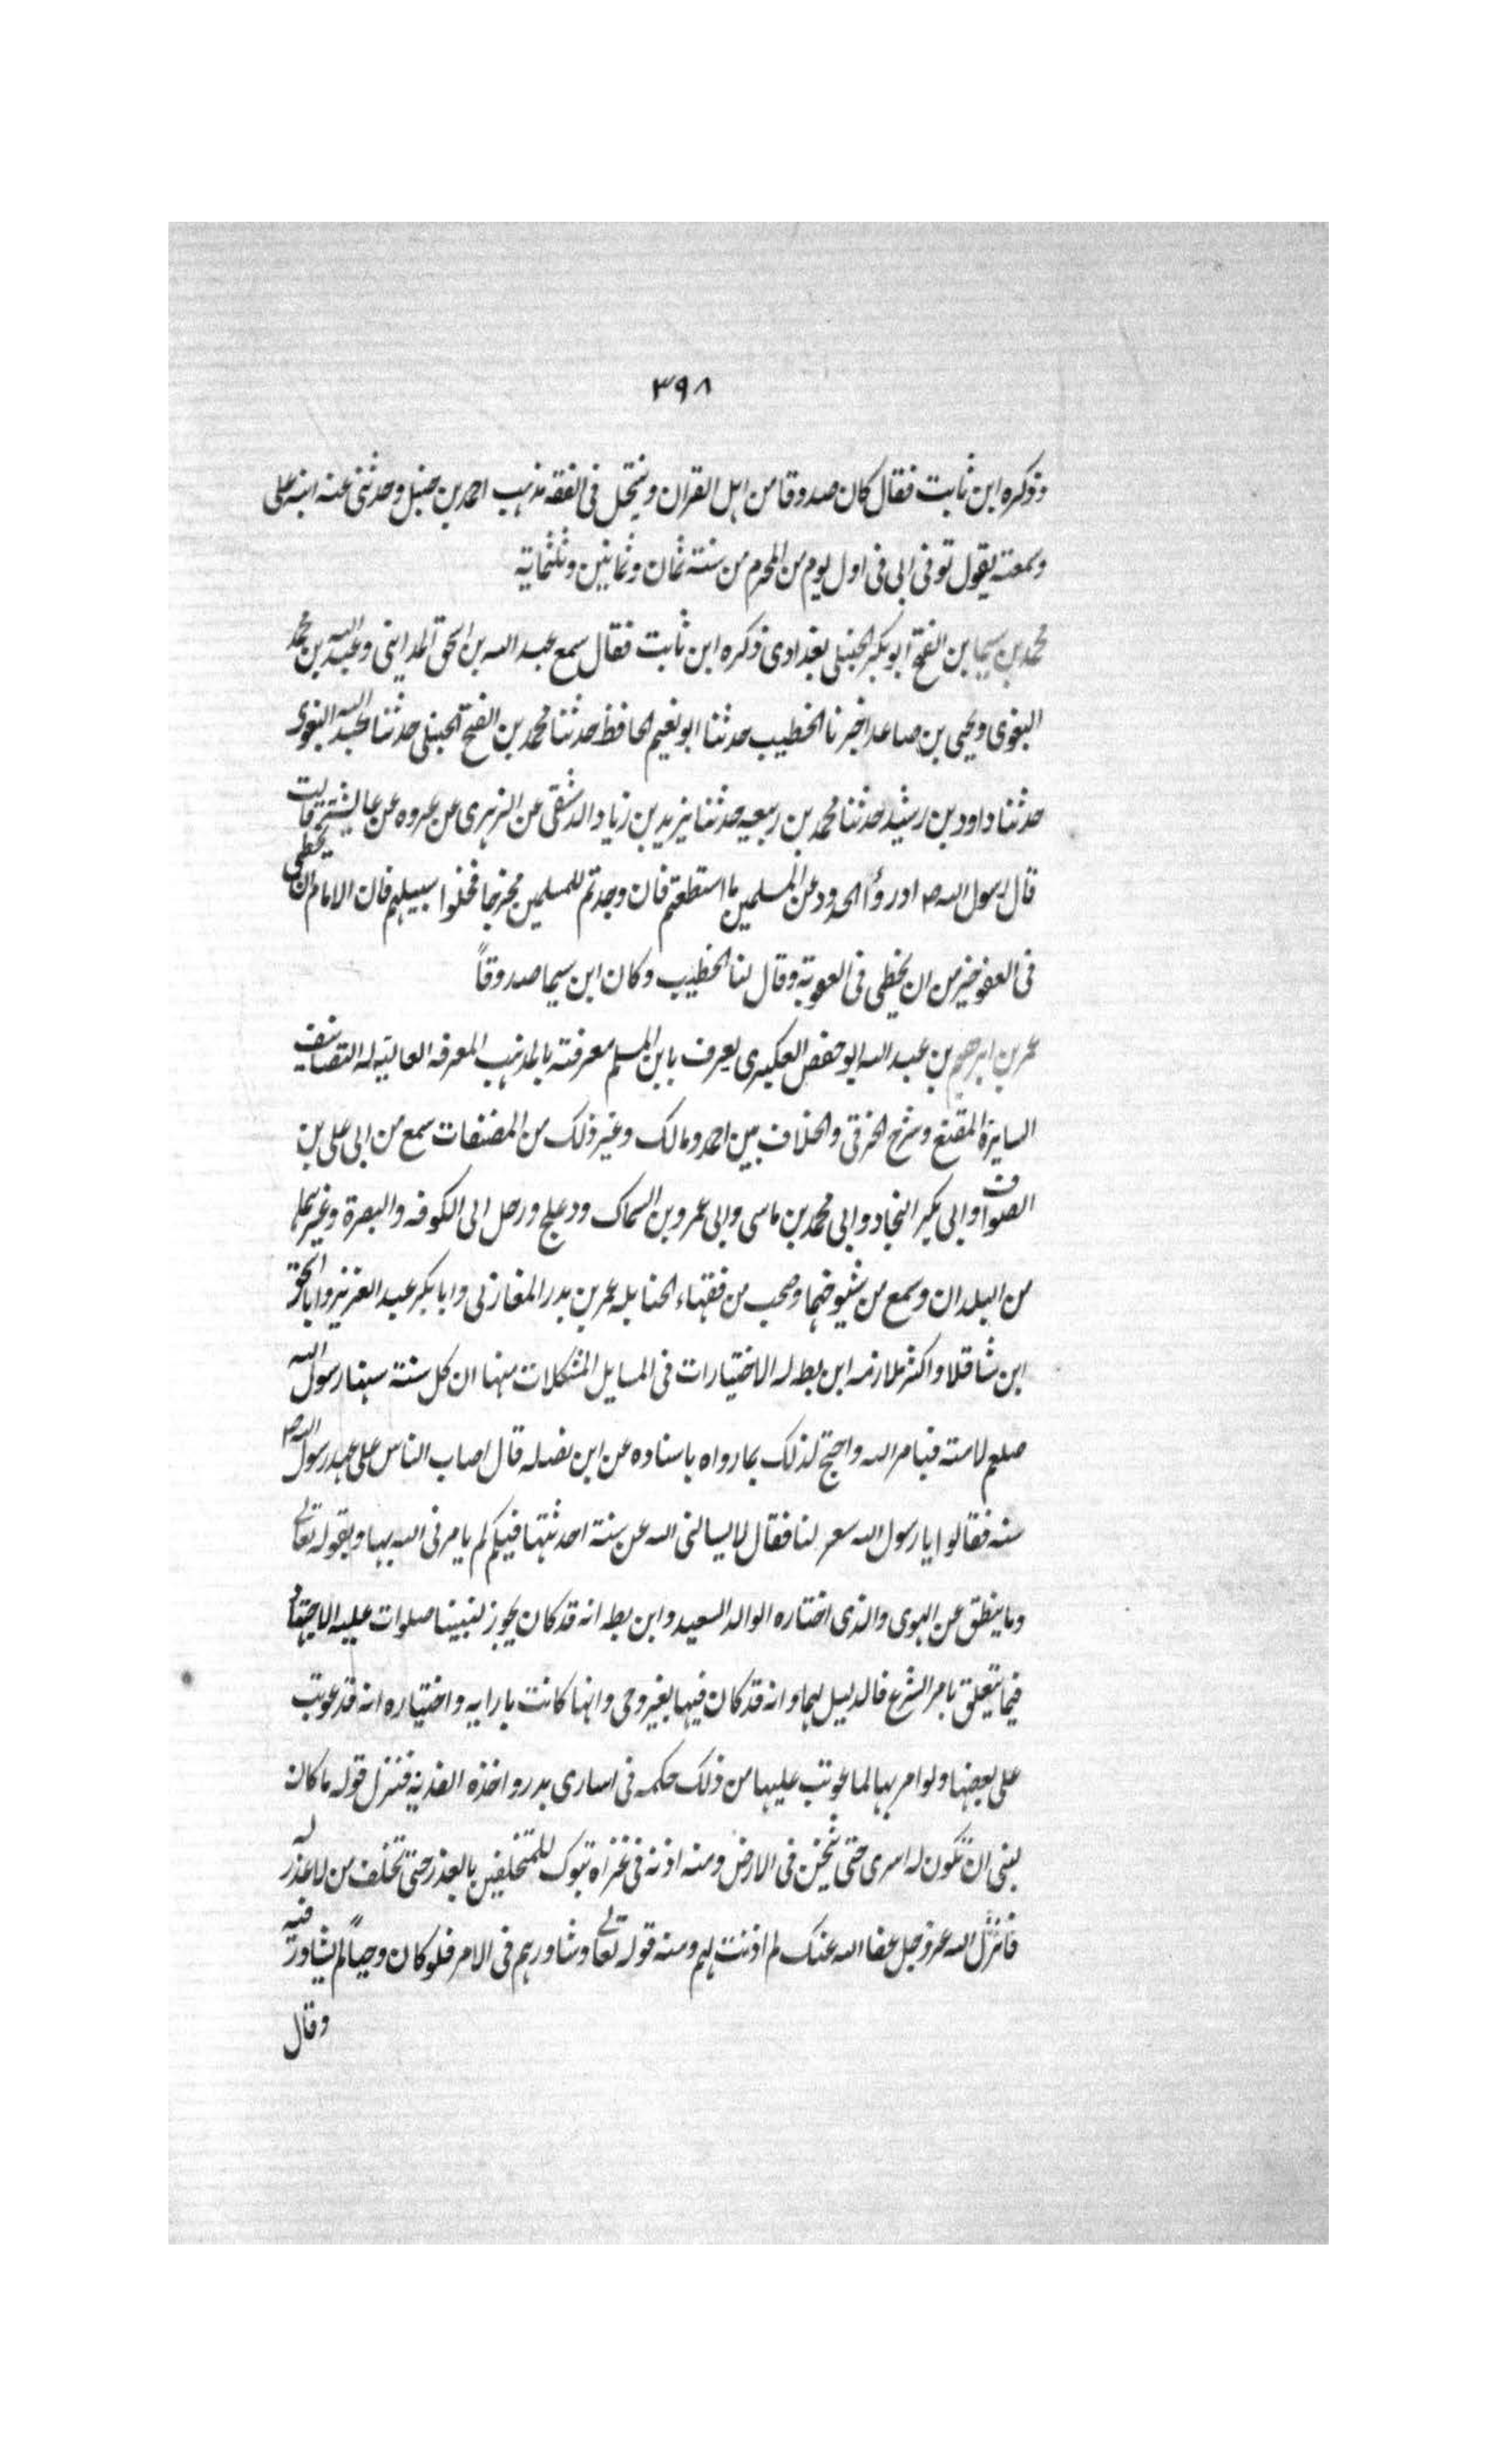 ٣٩٨
وذكره ابن ثابت فقال كان صدوقا من اهل القران وينتحل فى الفقه مذهب احمد بن حنبل وحدثنى عنه ابنه على
وسمعته يقول توفى ابى فى اول يوم من المحرم من سنته ثمان وثمانين وثلثماية
محمد بن سيما بن الفتح ابو بكر الحنبلى بغدادى ذكره ابن ثابت فقال سمع عبد الله بن اسحق المداينى وعبد الله بن محمد
البغوى ويحيى بن صاعد اخبرنا الخطيب حدثنا ابو نعيم الحافظ حدثنا محمد بن الفتح الحنبلى حدثنا عبد الله البغوى
حدثنا داود بن رشيد حدثنا محمد بن ربيعه حدثنا يزيد بن زياد الدمشقى عن الزهرى عن عروه عن عايشة قالت
قال رسول الله ص ادرؤا الحدود عن المسلمين ما استطعتم فان وجدتم للمسلمين مخرجا فخلوا سبيلهم فان الامام ان يخطى
فى العفو خير من ان يخطى فى العقوبة وقال لنا الخطيب وكان ابن سيما صدوقاً
عمر بن ابرهيم بن عبد الله ابو حفص العكبرى يعرف بابن المسلم معرفته بالمذهب المعرفه العالية له التصانيف
السايرة المقنع وشرح الخرقى والخلاف بين احمد ومالك وغير ذلك من المصنفات سمع من ابى على بن
الصواف وابى بكر النجاد وابى محمد بن ماسى وابى عمرو بن السماك ودعلج ورحل الى الكوفه والبصرة وغيرهما
من البلدان وسمع من شيوخهما وصحب من فقهاء الحنابله عمر بن بدر المغازلى وابا بكر عبد العزيز وابا اسحق
ابن شاقلا واكثر ملازمه ابن بطه له الاختيارات فى المسايل المشكلات منها ان كل سنته سنها رسول الله
صلعم لامته فبامر الله واحتج لذلك بما رواه باسناده عن ابن نضله قال اصاب الناس على عهد رسول الله ص
سنه فقالوا يا رسول الله سعر لنا فقال لا يسالنى الله عن سنته احدثتها فيكم لم يامرنى الله بها وبقوله تعالى
وما ينطق عن الهوى والذى اختاره الوالد السعيد وابن بطه انه قد كان يجوز لنبينا صلوات عليه الاجتهاد
فيما يتعلق بامر الشرع فالدليل لهما وانه قد كان فيها بغير وحى وانها كانت بارايه واختياره انه قد عوتب
على بعضها ولو امر بها لما عوتب عليها من ذلك حكمه فى اسارى بدر واخذه الفديه فنزل قوله ما كان
لبنى ان تكون له اسرى حتى يثخن فى الارض ومنه اذنه فى غزاه تبوك للمتخلفين بالعذر حتى تخلف من لا عذر له
فانزل الله عز وجل عفا الله عنك لم اذنت لهم ومنه قوله تعالى وشاورهم فى الامر فلو كان وحياً لم يشاور فيه
وقال